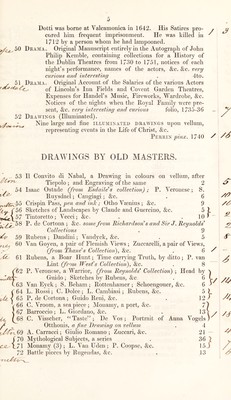 5
Dotti was borne at Valcomonica in 1642. His Satires pro-
cured him frequent imprisonment. He was killed in
1712 by a person whom he had lampooned.
50 DRAMA. Original Manuscript entirely in the Autograph of John
Philip Kemble, containing collections for a History of
the Dublin Theatres from 1730 to 1751, notices of each
night's performance, names of the actors, &c. &c. very
curious and interesting
51 DRAMA. Original Account of the Salaries of the various Actors
of Lincoln's Inn Fields and Covent Garden Theatres,
Expenses for Handel's Music, Fireworks, Wardrobe, &c.
Notices of the nights when the Royal Family were pre-
sent, &c. very interesting and curious folio, 1735-36
52 DRAWINGS (Illuminated).
Nine large and fine ILLUMINATED DRAWINGS upon vellum,
representing events in the Life of Christ, &c.
PERZIN pinx. 1740
DRAWINGS BY OLD MASTERS.
53 Il Convito di Nabal, a Drawing in colours on vellum, after
Tiepolo; and Engraving of the same 2
54 Isaac Ostade (from Esdaile's collection); P. Veronese; S.
Ruysdael; Cangiagi; &c. 6
55 Crispin Pass, pen and ink; Otho Vænius; &c. 9
56 Sketches of Landscapes by Claude and Guercino, &c. 5
57 Tintoretto; Vecci; &c. 10
58 P. de Cortona; &c. some from Richardson's and Sir J. Reynolds'
Collections 9
59 Rubens; Dandini; Vandyck, &c. 5
60 Van Goyen, a pair of Flemish Views; Zuccarelli, a pair of Views,
(from Thane's Collection), &c. 6
61 Rubens, a Boar Hunt; Time carrying Truth, by ditto; P. van
Lint (from West's Collection), &c. 8
62 P. Veronese, a Warrior, (from Reynolds' Collection); Head by
Guido; Sketches by Rubens, &c. 6
63 Van Eyck; S. Beham; Rottenhamer; Schoengoner, &c. 6
64 L. Russi; C. Dolce; L. Cambiasi; Rubens, &c. 5
65 P. de Cortona; Guido Reni, &c. 12
66 C. Vroom, a sea piece; Monamy, a port, &c. 7
67 Barroccio; L. Giordano, &c. 13
68 C. Visscher, "Tasis"; De Vos; Portrait of Anna Vogels
Otthonis, a fine Drawing on vellum 4
69 A. Carracci; Giulio Romano; Zuccari, &c. 21
70 Mythological Subjects, a series 36
71 Monamy (3); L. Van Uden; P. Coopse, &c. 15
72 Battle pieces by Rugendas, &c. 13